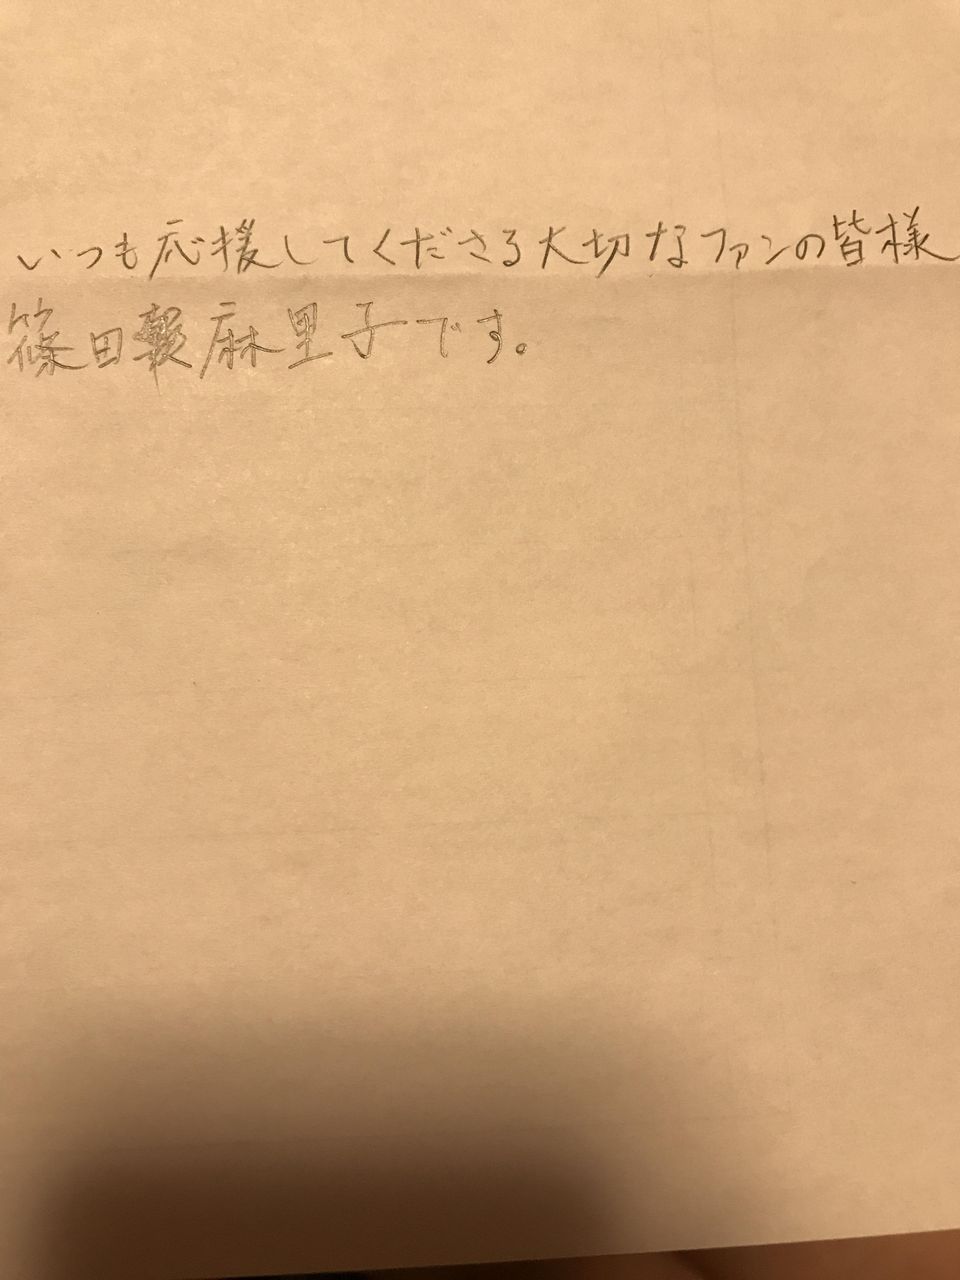 いつも応援してくださる大切なファンの皆様
篠田麻里子です。